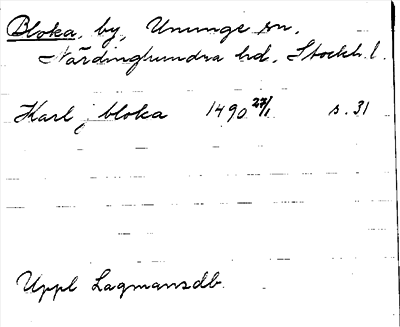 Bloka, by, Ununge sn,
Närdinghundra hd, Stockh. l.
Karl i bloka 1490 27/1 s. 31
Uppl Lagmansdb.